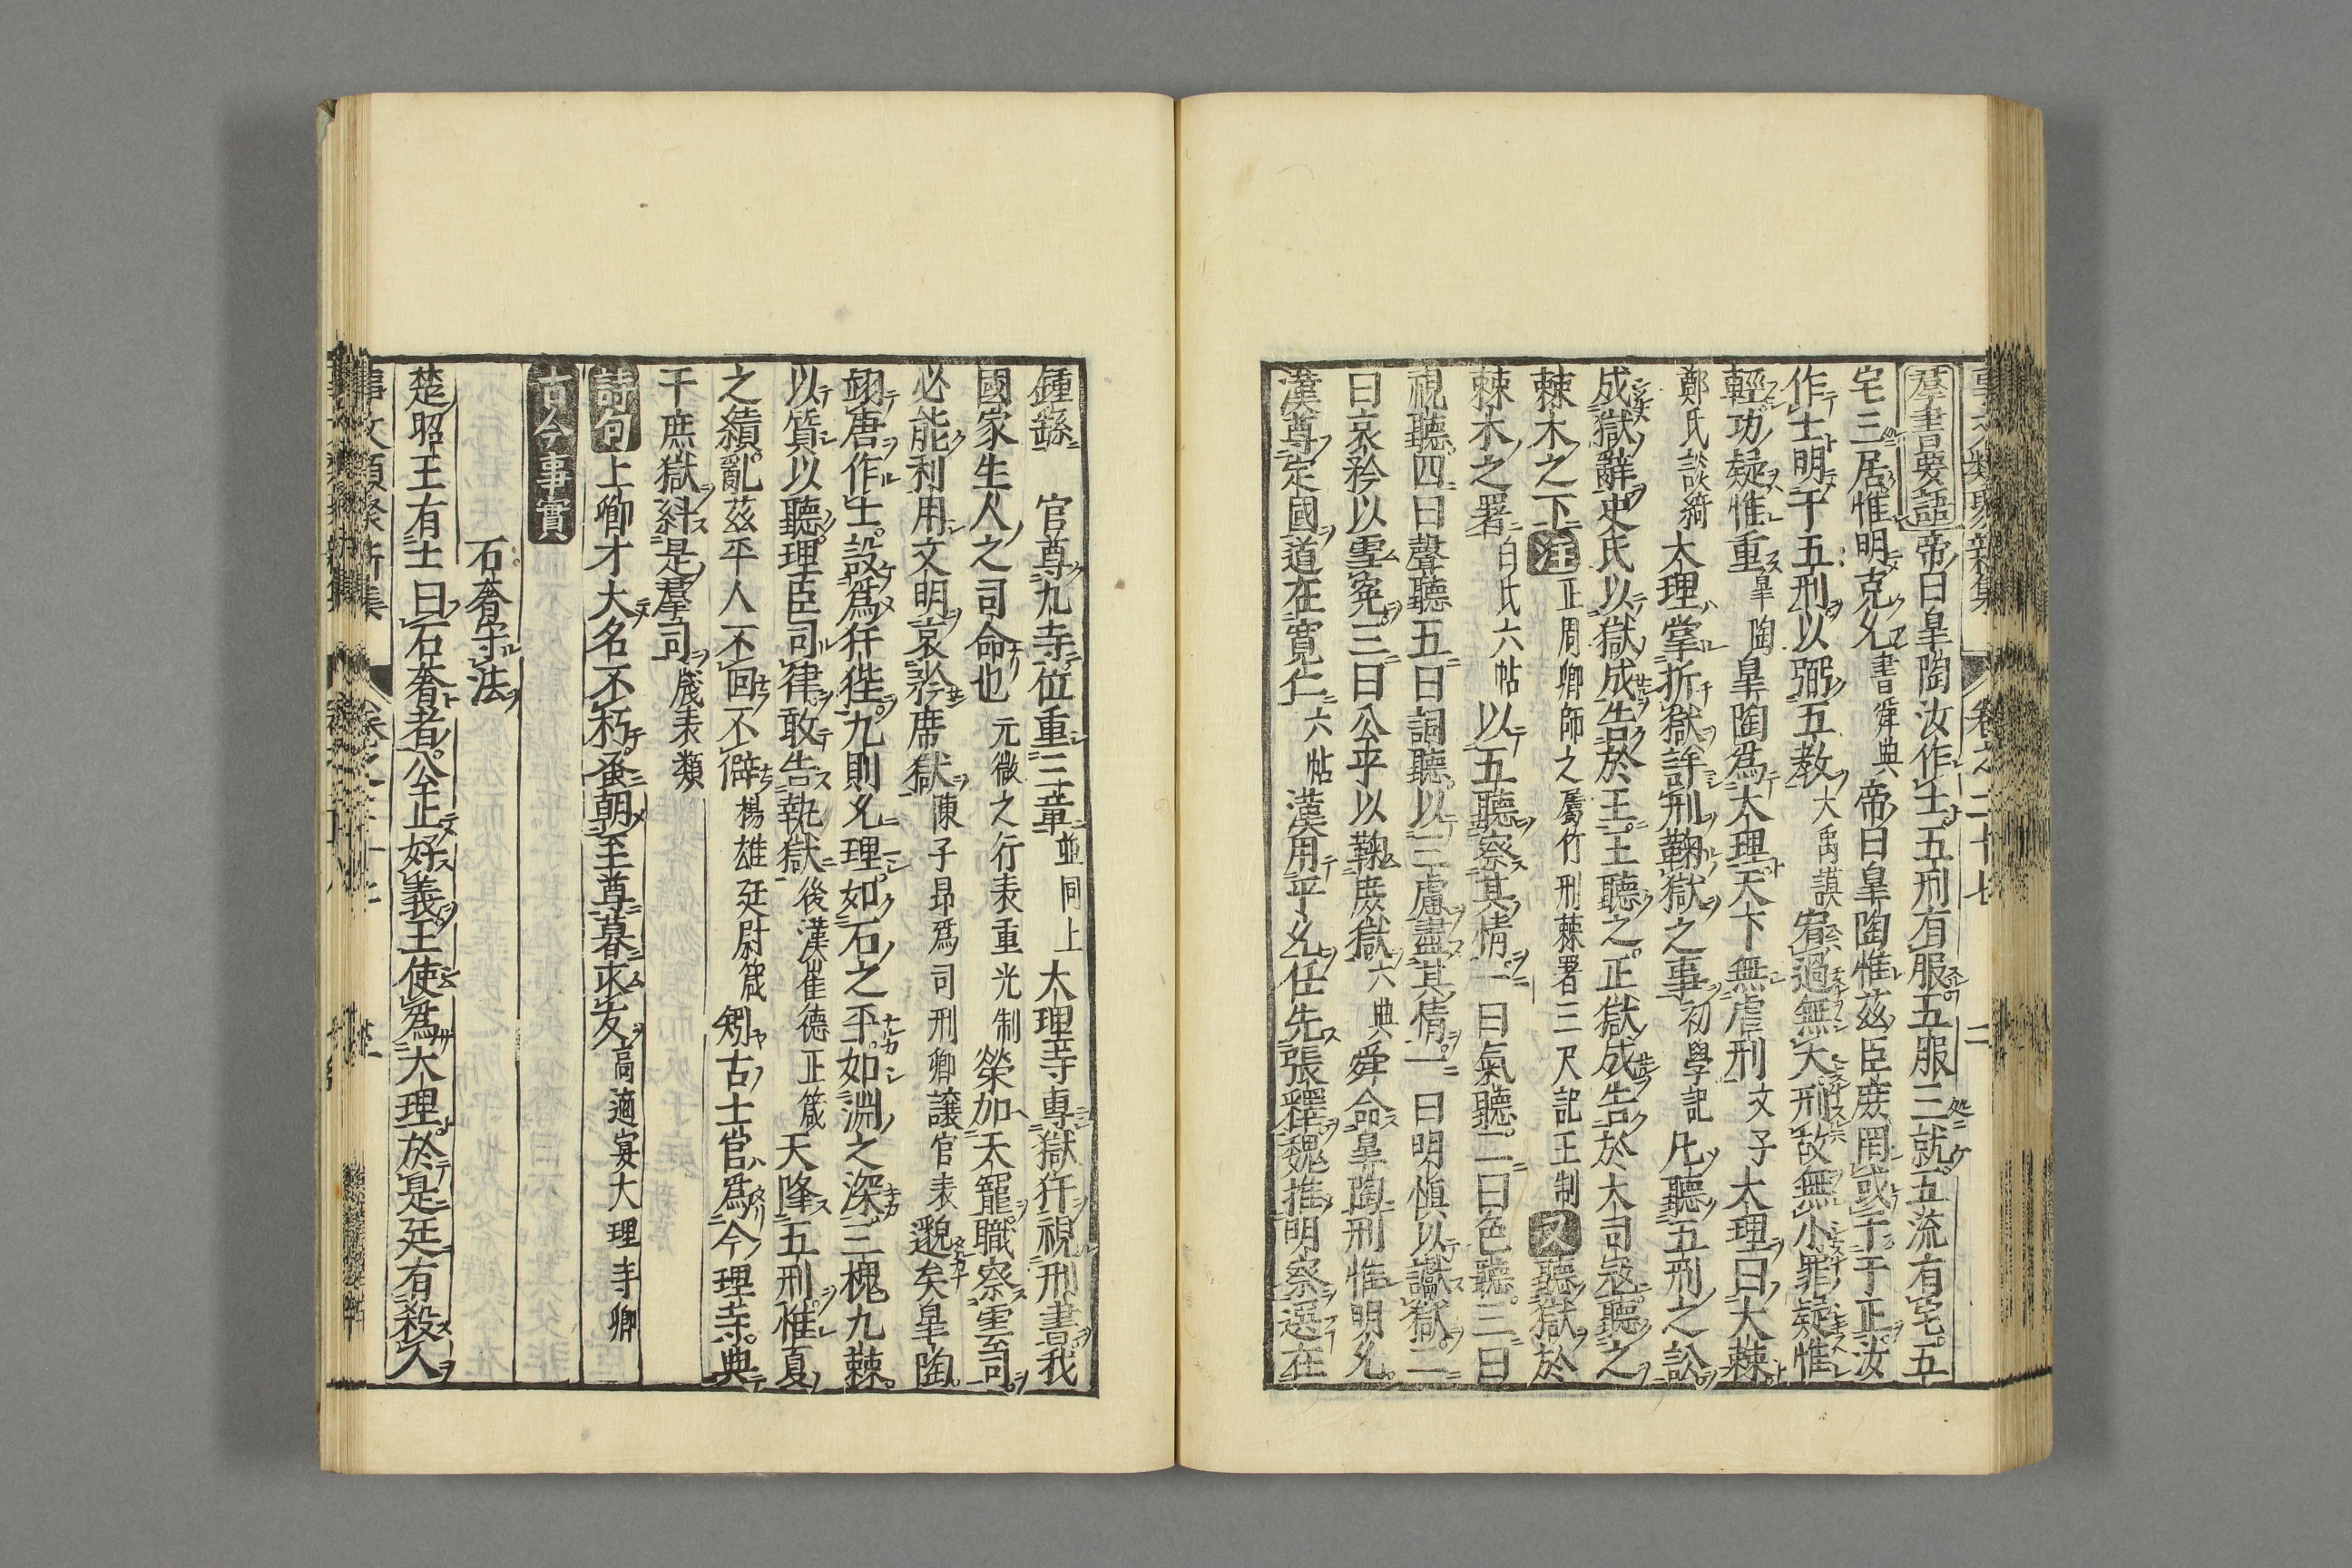 事文類聚新集 卷之二十七 二
羣書要語 帝曰皐陶汝作士五刑有服五服三就五流有宅五
宅三居惟明克允 書舜典 帝曰皐陶惟茲臣庶罔或干予正汝
作士明于五刑以弼五教 大禹謨 宥過無大刑故無小罪疑惟
輕功疑惟重 皐陶 皐陶爲大理天下無虐刑 文子 大理曰大棘
鄭氏談綺 大理掌折獄詳刑鞠獄之事 初學記 凡聽五刑之訟
成獄辭史氏以獄成告於王王聽之正獄成告於大司寇聽之
棘木之下 注 正周卿師之屬竹刑棘署三尺記王制 又 聽獄於
棘木之署 白氏六帖 以五聽察其情一曰氣聽二曰色聽三曰
視聽四曰聲聽五曰詞聽以三慮盡其情一曰明愼以讞獄二
曰哀矜以雪寃三曰公乎以鞠庶獄 六典 舜命皐陶刑惟明允
漢尊定國道在寬仁 六帖 漢用平允任先張釋魏推明察選在
鍾繇 官尊九寺位重三章 並同上 大理寺專獄犴視刑書我
國家生人之司命也 元微之行表重光制 榮加天寵職察雲司
必能利用文明哀矜席獄 陳子昂爲司刑卿讓官表 邈矣皐陶
翊唐作士設爲犴狴九則允理如石之平如淵之深三槐九棘
以質以聽理臣司律敢告執獄 後漢崔德正箴 天降五刑惟夏
之績亂茲平人不回不僻 楊雄廷尉箴 矧古士官爲今理寺典
干庶獄糾是羣司 箴表類
詩句 上卿才大名不朽蚤朝至尊暮求友 高適宴大理寺卿
古今事實
石奢守法
楚昭王有士曰石奢者公正好義王使爲大理於是廷有殺人
事文類聚新集